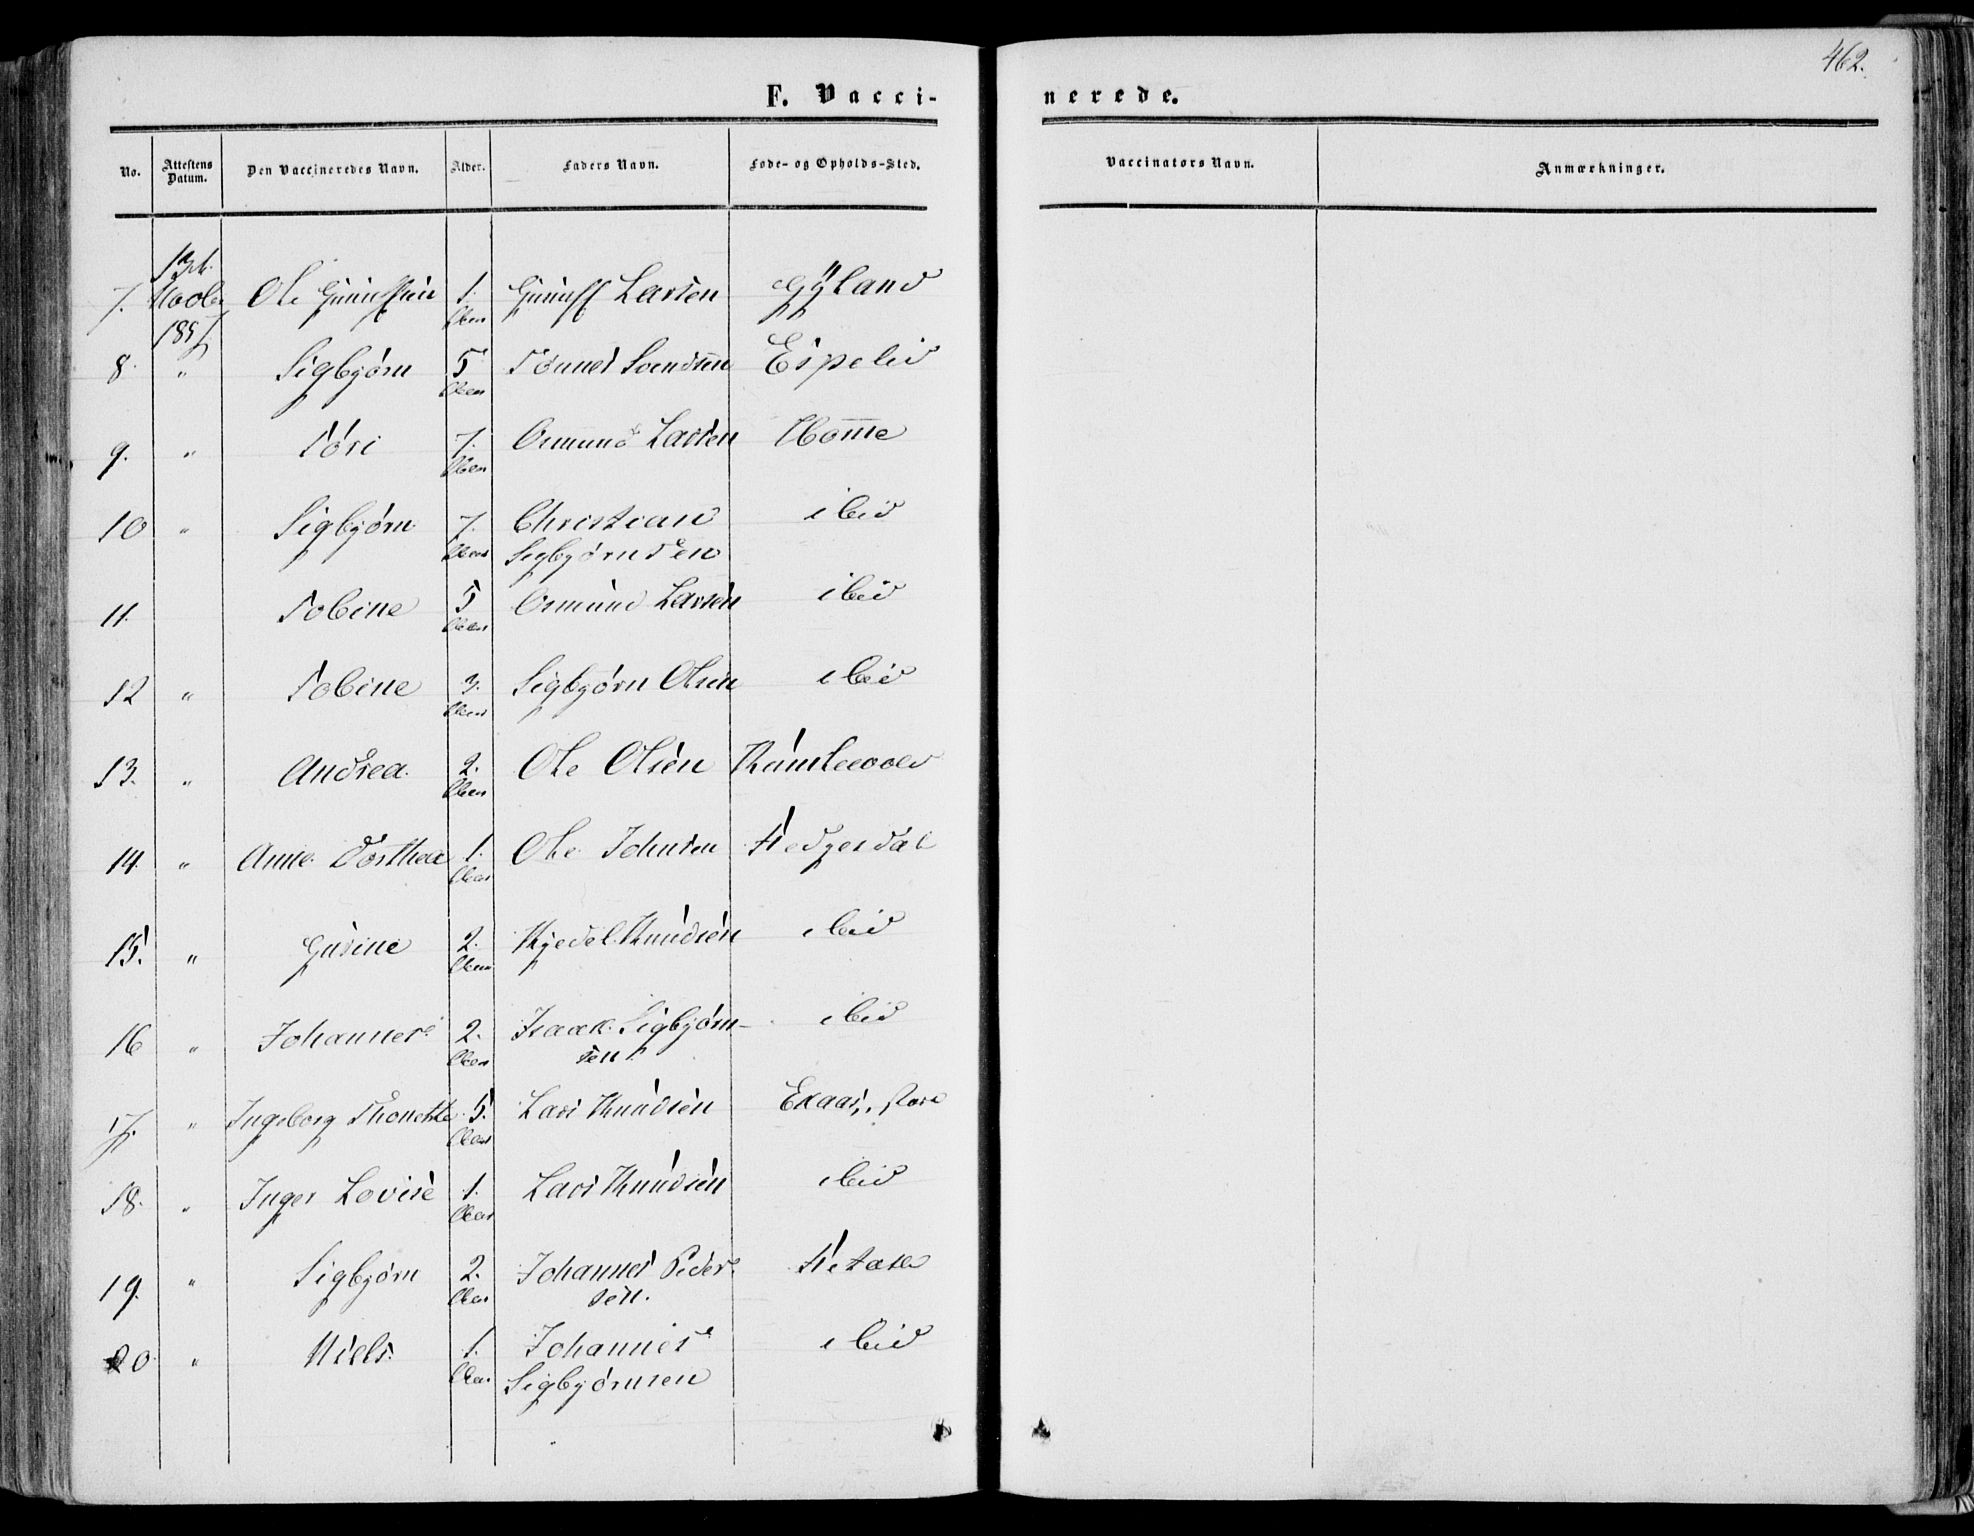 462.
F. Vacci-
nerede.
No. Attestens Datum. Den Vaccineredes Navn. Alder. Faders Navn. Føde- og Opholds-Sted. Vaccinators Navn. Anmærkninger.
7. 1857 Ole 1. Aar Larsen Gÿland
8. " Sigbjørn 5 Aar Tønnes Svendsen Espelid
9. " Tøri 7. Aar Osmund Larsen
10 " Sigbjørn 7. Aar Christian
Sigbjørnsen ibid
11. Tobine 5 Aar Osmund Larsen ibid
12 " Tobine 3. Aar Sigbjørn Olsen ibid
13. " Andrea. 2. Aar Ole Olsen
14. " Anne Dorthea 1. Aar Ole Johnsen
15. " Gusine 2. Aar Kjedel Knudsen ibid
16 " Johannes 2. Aar Isaak Sigbjørn-
sen ibid
17. " Ingeborg Thonette 5. Aar Lars Knudsen Eraas, store
18. " Inger Lovise 1. Aar Lars Knudsen ibid
19. " Sigbjørn 2. Aar Johannes Peder-
sen.
20. " Niels. 1. Aar Johannes
Sigbjørnsen ibid